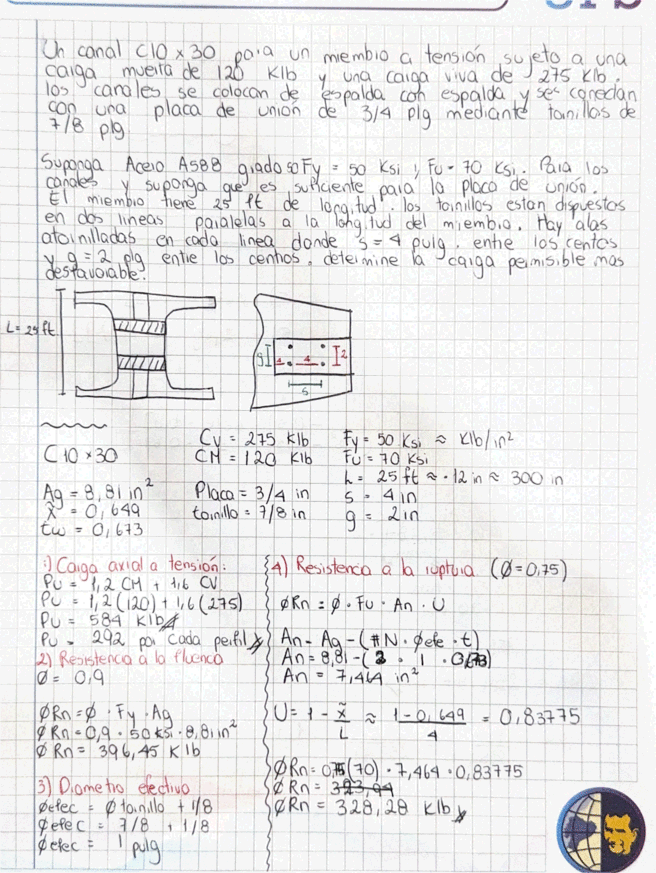 Un canal C10 x 30 para un miembro a tensión sujeto a una
carga muerta de 120 Klb y una carga viva de 275 klb.
los canales se colocan de espalda con espalda y se conectan
con una placa de unión de 3/4 plg mediante tornillos de
7/8 plg
Suponga Acero A588 grado 50 Fy = 50 Ksi y Fu = 70 Ksi. Para los
canales y suponga que es suficiente para la placa de unión.
El miembro tiene 25 ft de longitud. los tornillos estan dispuestos
en dos lineas paralelas a la longitud del miembro. Hay alas
atornilladas en cada linea donde s = 4 pulg. entre los centos
y g = 2 plg entre los centros, determine la carga permisible mas
desfavorable.
L = 25 ft
g
4
4
2
s
C10 x 30
Ag = 8,81 in²
x̄ = 0,649
tw = 0,673
Cv = 275 klb
CM = 120 Klb
Placa = 3/4 in
tornillo = 7/8 in
Fy = 50 Ksi ≈ Klb/in²
Fu = 70 Ksi
L = 25 ft ≈ · 12 in ≈ 300 in
s = 4 in
g = 2 in
1) Carga axial a tensión:
Pu = 1,2 CM + 1,6 CV
Pu = 1,2 (120) + 1,6 (275)
Pu = 584 klb
Pu = 292 por cada perfil
2) Resistencia a la fluencia
Ø = 0,9
ØRn = Ø · Fy · Ag
ØRn = 0,9 · 50 ksi · 8,81 in²
ØRn = 396,45 Klb
3) Diametro efectivo
Øefec = Ø tornillo + 1/8
Øefec = 7/8 + 1/8
Øefec = 1 pulg
4) Resistencia a la ruptura (Ø = 0,75)
ØRn = Ø · Fu · An · U
An = Ag - (#N · Øefe · t)
An = 8,81 - (2 · 1 · 0,673)
An = 7,464 in²
U = 1 - x̄/L ≈ 1 - 0,649/4 = 0,83775
ØRn = 0,75 (70) · 7,464 · 0,83775
ØRn =
ØRn = 328,28 klb